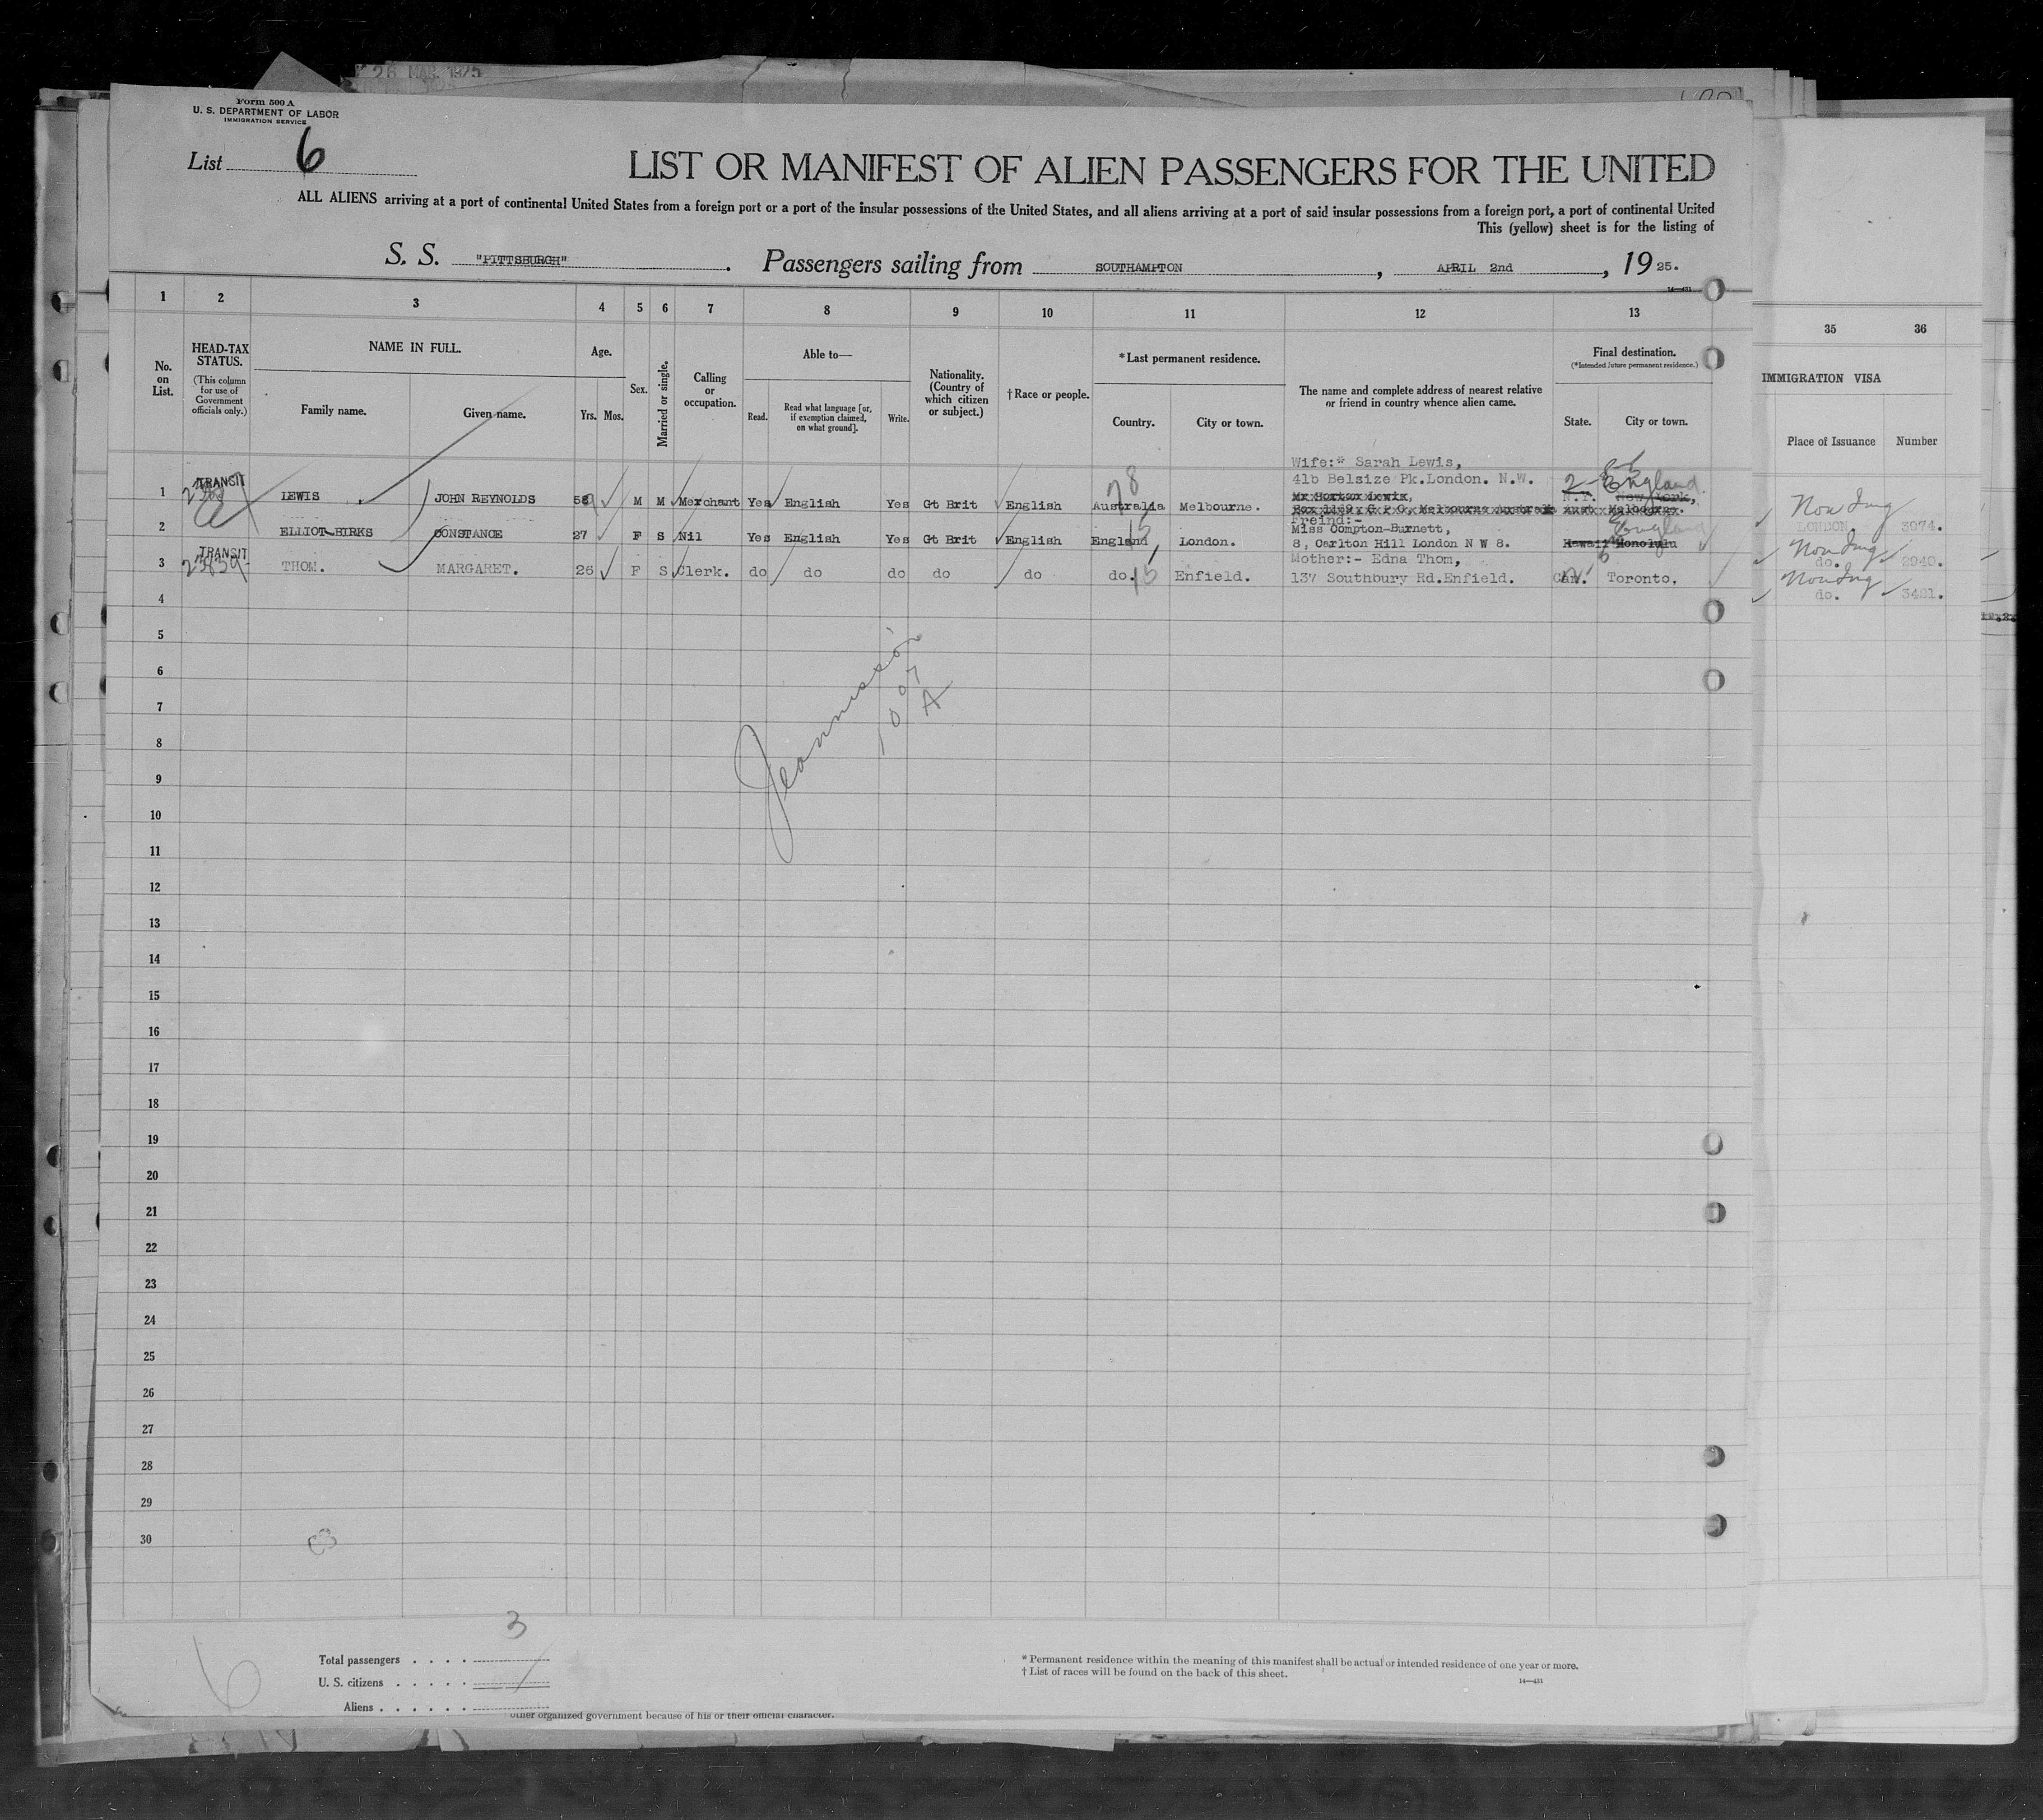 26 MAR. 1925
Form 500 A
U. S. DEPARTMENT OF LABOR
IMMIGRATION SERVICE
List 6
LIST OR MANIFEST OF ALIEN PASSENGERS FOR THE UNITED
ALL ALIENS arriving at a port of continental United States from a foreign port or a port of the insular possessions of the United States, and all aliens arriving at a port of said insular possessions from a foreign port, a port of continental United
This (yellow) sheet is for the listing of
S. S. "PITTSBURGH". Passengers sailing from SOUTHAMPTON, APRIL 2nd, 1925.
14—431
1 2 3 4 5 6 7 8 9 10 11 12 13 35 36
No. on List.
HEAD-TAX STATUS.
(This column for use of Government officials only.)
NAME IN FULL.
Family name. Given name.
Age.
Yrs. Mos.
Sex.
Married or single.
Calling or occupation.
Able to—
Read. Read what language [or, if exemption claimed, on what ground]. Write.
Nationality. (Country of which citizen or subject.)
†Race or people.
*Last permanent residence.
Country. City or town.
The name and complete address of nearest relative or friend in country whence alien came.
Final destination.
(*Intended future permanent residence.)
State. City or town.
IMMIGRATION VISA
Place of Issuance Number
Wife:* Sarah Lewis,
41b Belsize Pk.London. N.W.
1 TRANSIT LEWIS JOHN REYNOLDS M M Merchant Yes English Yes Gt Brit English Australia Melbourne. Mr Horton Lewis, N.Y. New York, England.
Box 1169, G. P. O, Melbourne Aust Melbourne.
Non Img LONDON. 3974.
Freind:-
2 ELLIOT-BIRKS CONSTANCE 27 F S Nil Yes English Yes Gt Brit English England, London. Miss Compton-Burnett,
8, Carlton Hill London N W 8. Hawaii Honolulu England
Non Img do. 2940.
3 TRANSIT THOM. MARGARET. 26 F S Clerk. do do do do do do. Enfield. Mother:- Edna Thom,
137 Southbury Rd.Enfield. Can. Toronto.
Non Img do. 3421.
4
5
6
7
8
9
10
11
12
13
14
15
16
17
18
19
20
21
22
23
24
25
26
27
28
29
30
3
6
Total passengers . . . .
U. S. citizens . . . . .
Aliens . . . . . .
* Permanent residence within the meaning of this manifest shall be actual or intended residence of one year or more.
† List of races will be found on the back of this sheet.
14—431
other organized government because of his or their official character.